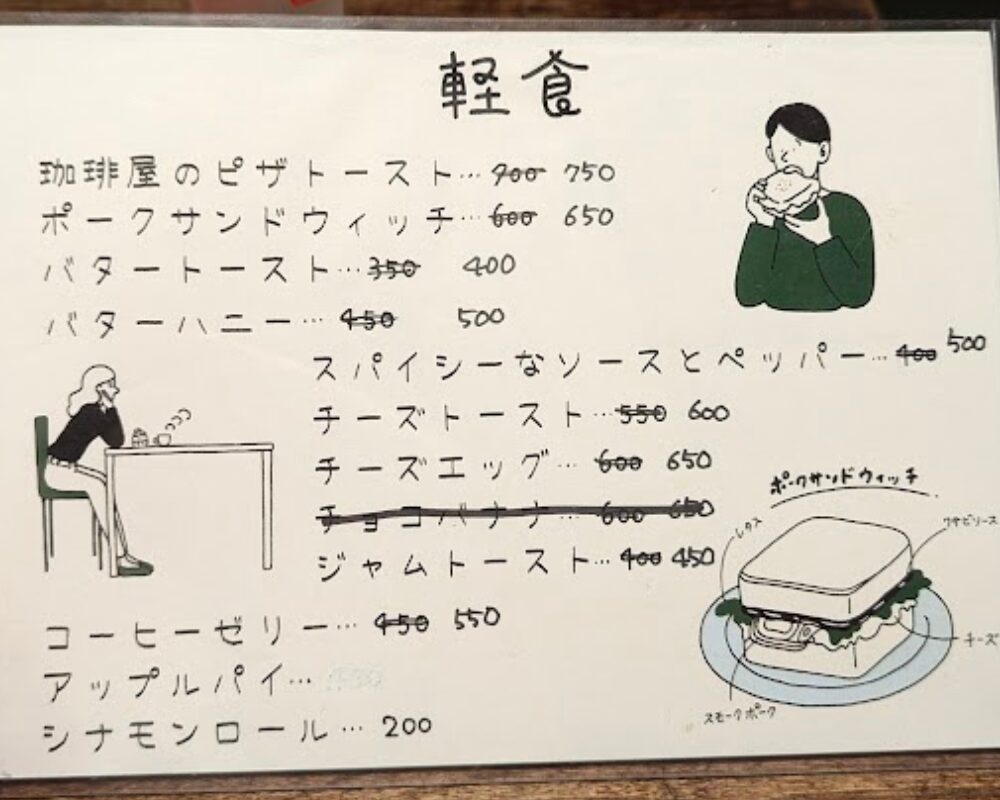 軽食
珈琲屋のピザトースト… 700 750
ポークサンドウィッチ… 600 650
バタートースト… 350 400
バターハニー… 450 500
スパイシーなソースとペッパー… 400 500
チーズトースト… 550 600
チーズエッグ… 600 650
チョコバナナ… 600 650
ジャムトースト… 400 450
ポークサンドウィッチ
レタス
ワサビソース
チーズ
スモークポーク
コーヒーゼリー… 450 550
アップルパイ…
シナモンロール… 200